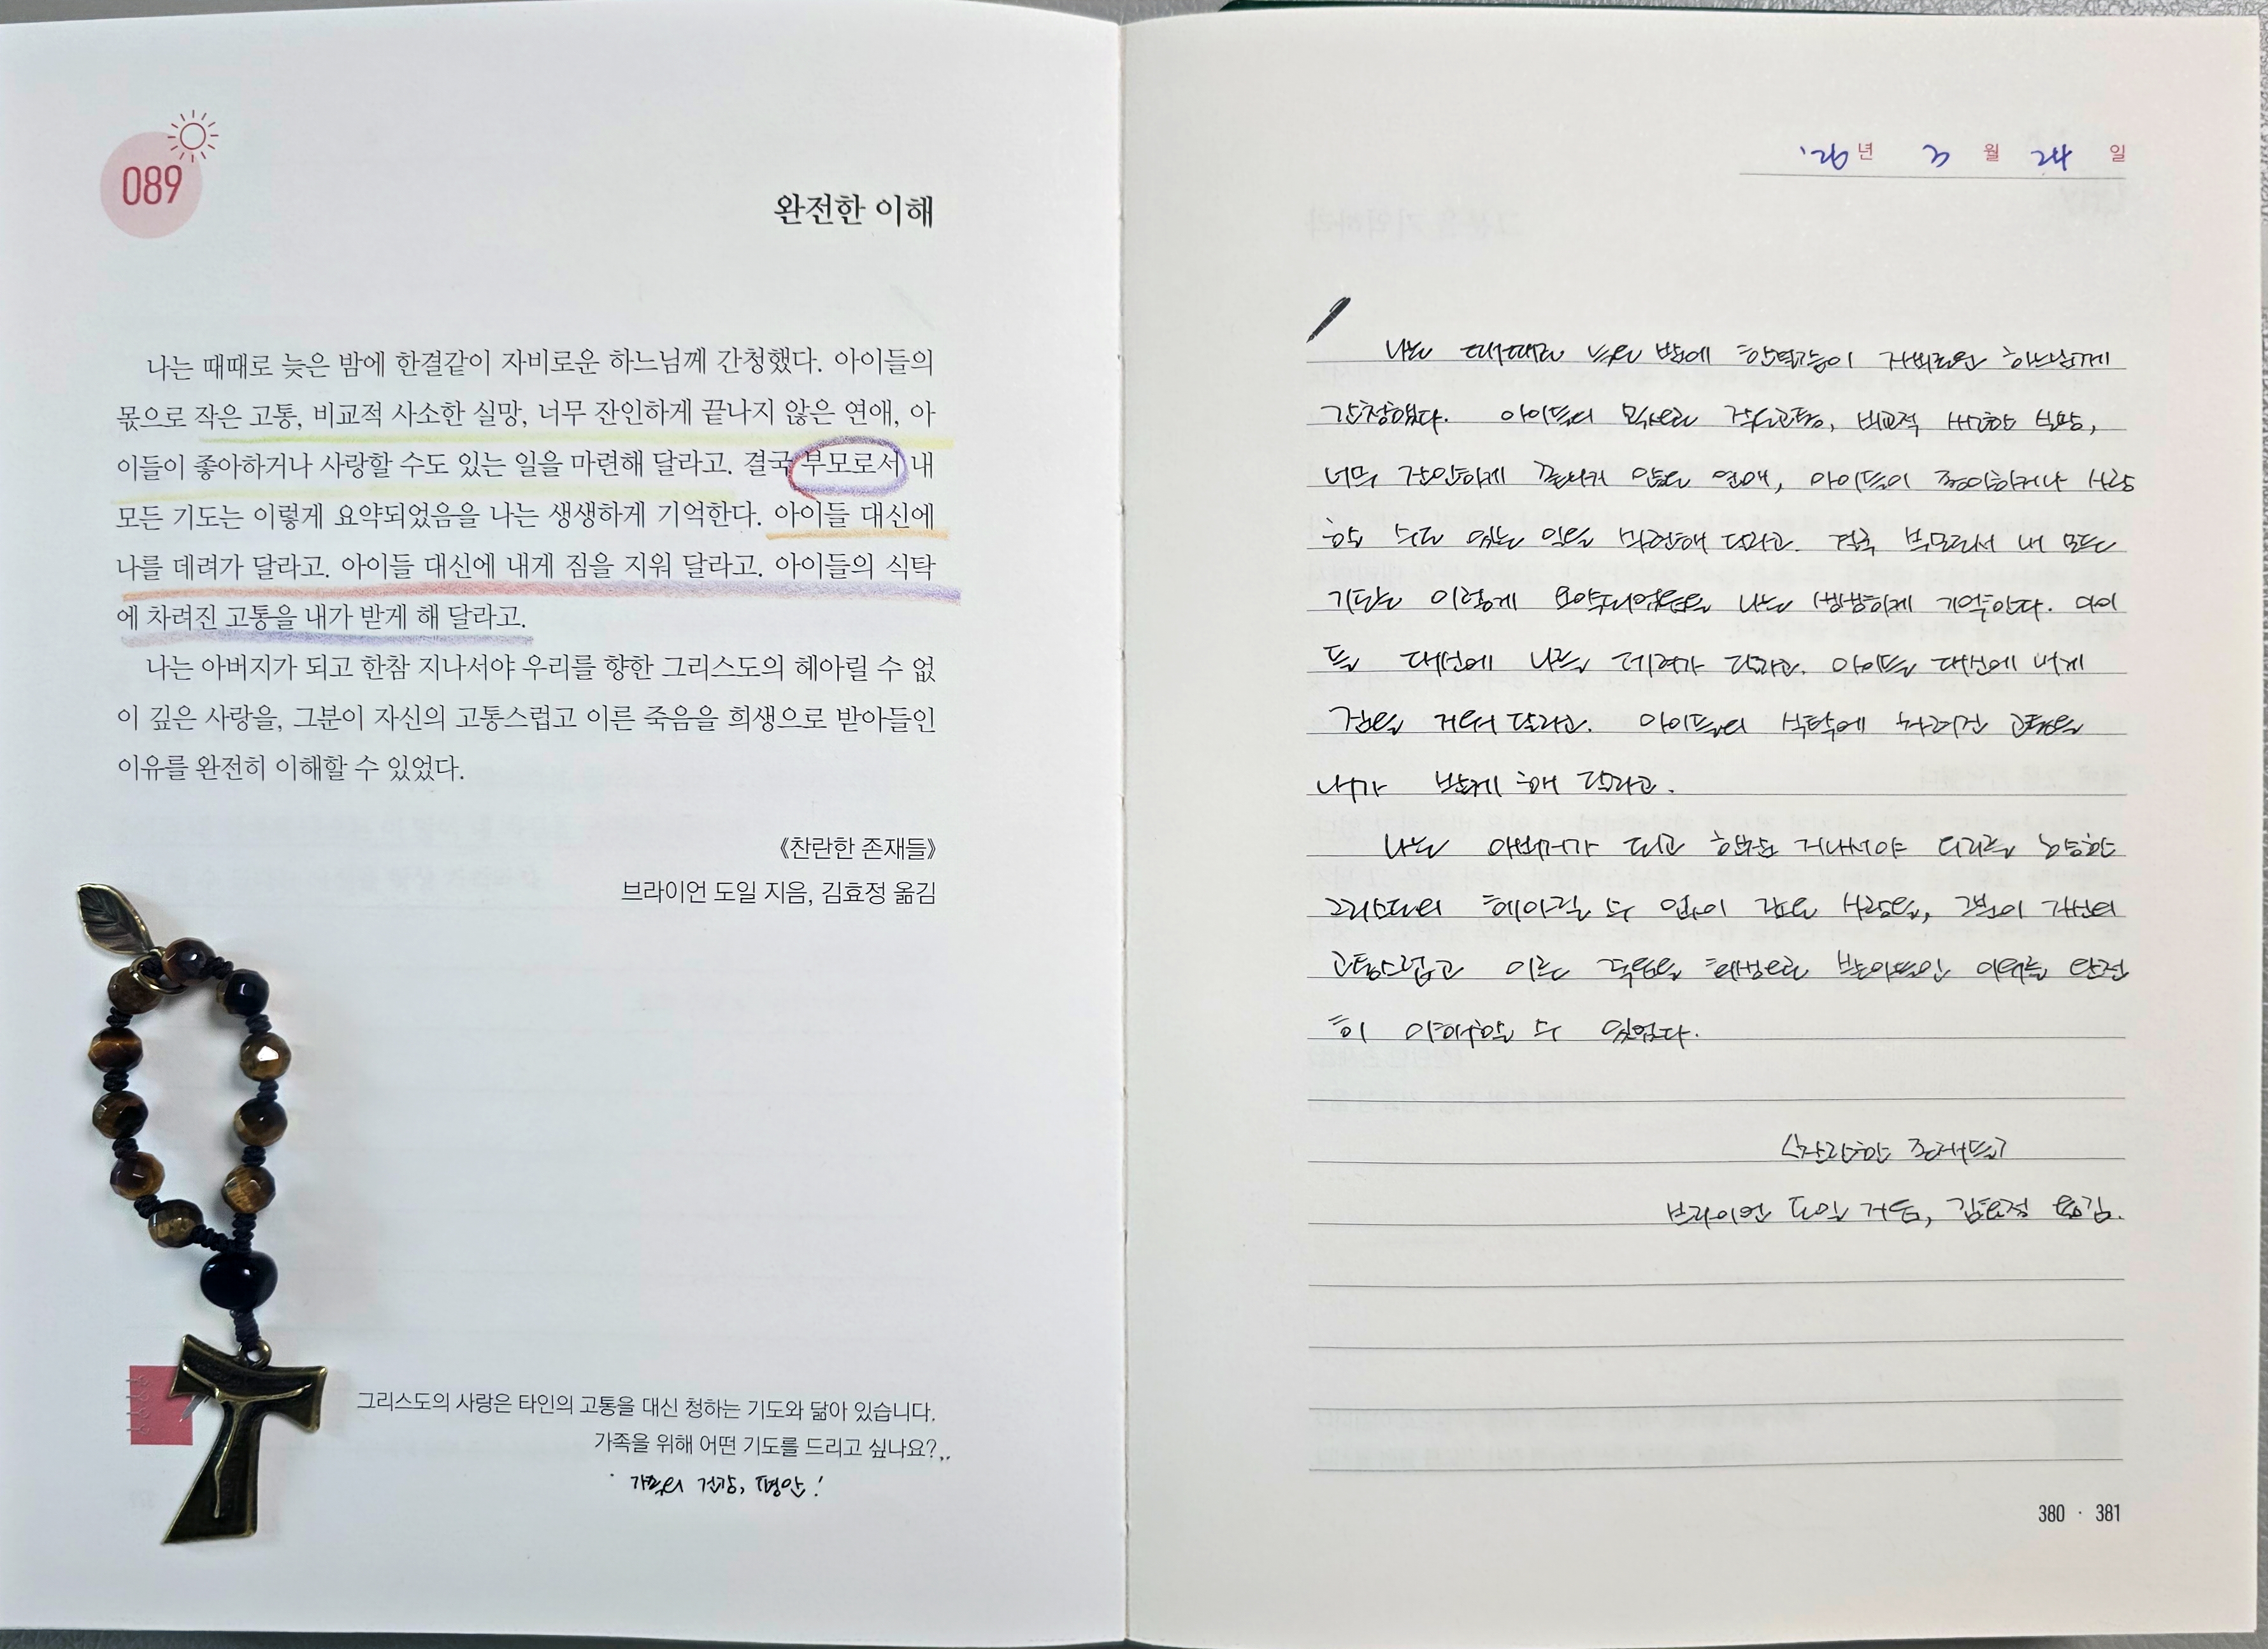 089
완전한 이해
나는 때때로 늦은 밤에 한결같이 자비로운 하느님께 간청했다. 아이들의
몫으로 작은 고통, 비교적 사소한 실망, 너무 잔인하게 끝나지 않은 연애, 아
이들이 좋아하거나 사랑할 수도 있는 일을 마련해 달라고. 결국 부모로서 내
모든 기도는 이렇게 요약되었음을 나는 생생하게 기억한다. 아이들 대신에
나를 데려가 달라고. 아이들 대신에 내게 짐을 지워 달라고. 아이들의 식탁
에 차려진 고통을 내가 받게 해 달라고.
나는 아버지가 되고 한참 지나서야 우리를 향한 그리스도의 헤아릴 수 없
이 깊은 사랑을, 그분이 자신의 고통스럽고 이른 죽음을 희생으로 받아들인
이유를 완전히 이해할 수 있었다.
《찬란한 존재들》
브라이언 도일 지음, 김효정 옮김
그리스도의 사랑은 타인의 고통을 대신 청하는 기도와 닮아 있습니다.
가족을 위해 어떤 기도를 드리고 싶나요?
가족의 건강, 평안!
'26년 3월 24일
나는 때때로 늦은 밤에 한결같이 자비로운 하느님께
간청했다. 아이들의 몫으로 작은 고통, 비교적 사소한 실망,
너무 잔인하게 끝나지 않은 연애, 아이들이 좋아하거나 사랑
할 수도 있는 일을 마련해 달라고. 결국 부모로서 내 모든
기도는 이렇게 요약되었음을 나는 생생하게 기억한다. 아이
들 대신에 나를 데려가 달라고. 아이들 대신에 내게
짐을 지워 달라고. 아이들의 식탁에 차려진 고통을
내가 받게 해 달라고.
나는 아버지가 되고 한참 지나서야 우리를 향한
그리스도의 헤아릴 수 없이 깊은 사랑을, 그분이 자신의
고통스럽고 이른 죽음을 희생으로 받아들인 이유를 완전
히 이해할 수 있었다.
<찬란한 존재들>
브라이언 도일 지음, 김효정 옮김.
380 · 381